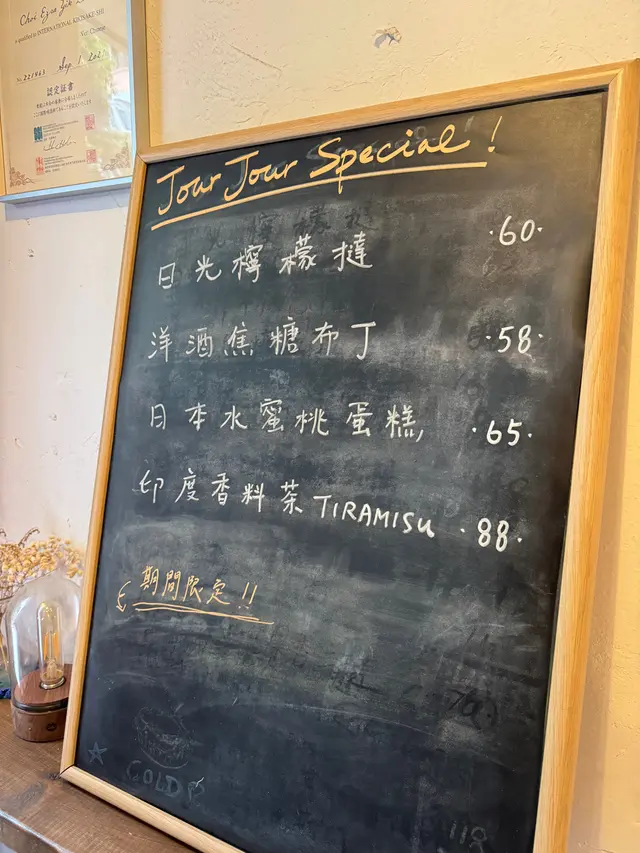 is qualified as INTERNATIONAL KIKISAKE-SHI
No. 221463 Sep. 1.
認定証書
Jour Jour Special!
日光檸檬撻 ·60·
洋酒焦糖布丁 ·58·
日本水蜜桃蛋糕, ·65·
印度香料茶 TIRAMISU ·88·
期間限定!!
GOLD
118